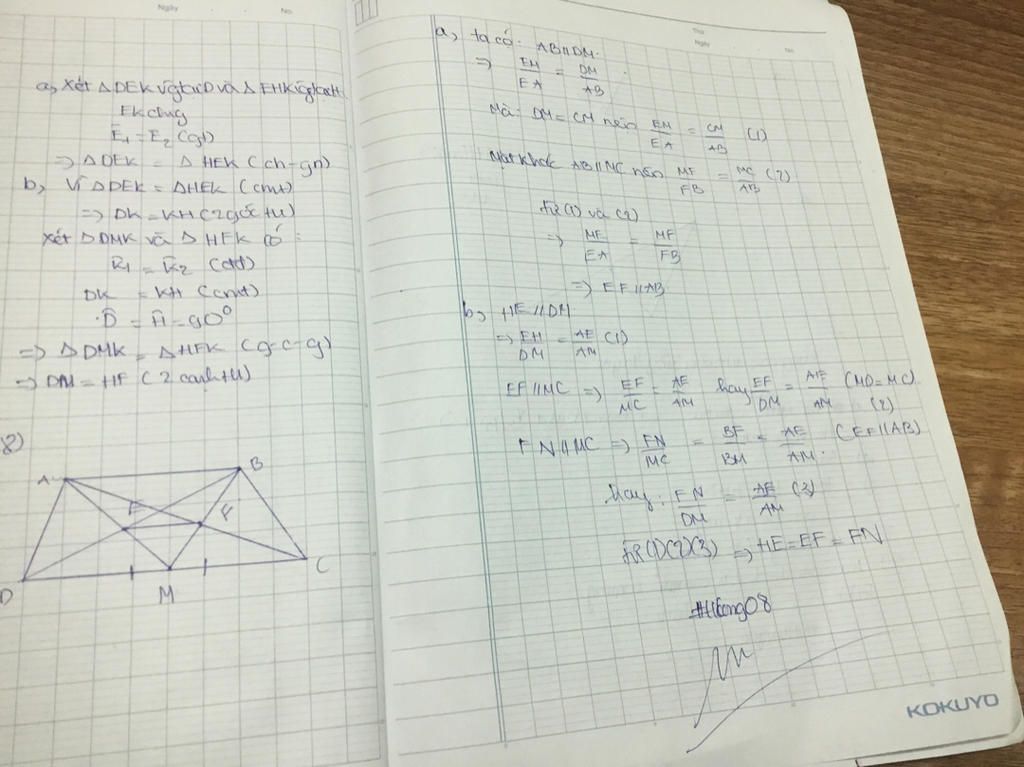 Ngày No
a, Xét △DEK vg tại D và △EHK vg tại H
EK chug
E₁ = E₂ (gt)
⇒ △DEK = △HEK (ch-gn)
b, Vì △DEK = △HEK (cmt)
⇒ DK = KH (2 góc tư)
Xét △DMK và △HFK có :
K₁ = K₂ (đđ)
DK = KH (cmt)
D = H = 90°
⇒ △DMK = △HFK (g-c-g)
⇒ DM = HF (2 cạnh tư)
8)
A B
E F
D M C
Thứ
Ngày No
a, ta có: AB//DM.
⇒ EM/EA = DM/AB
Mà: DM = CM nên EM/EA = CM/AB (1)
Mặt khác AB//MC nên MF/FB = MC/AB (2)
Từ (1) và (2)
⇒ ME/EA = MF/FB
⇒ EF//AB
b, HE//DM
⇒ EH/DM = AE/AM (1)
EF//MC ⇒ EF/MC = AE/AM hay EF/DM = AE/AM (MD = MC) (2)
FN//MC ⇒ FN/MC = BF/BM = AE/AM. (EF//AB)
hay: FN/DM = AE/AM (3)
Từ (1)(2)(3) ⇒ HE = EF = FN
KOKUYO